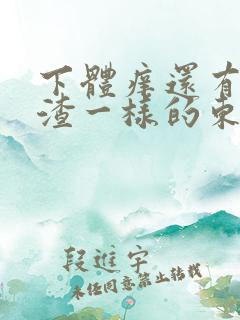 下體痒還有
渣一樣的東
段進宇
未經同意禁止轉載